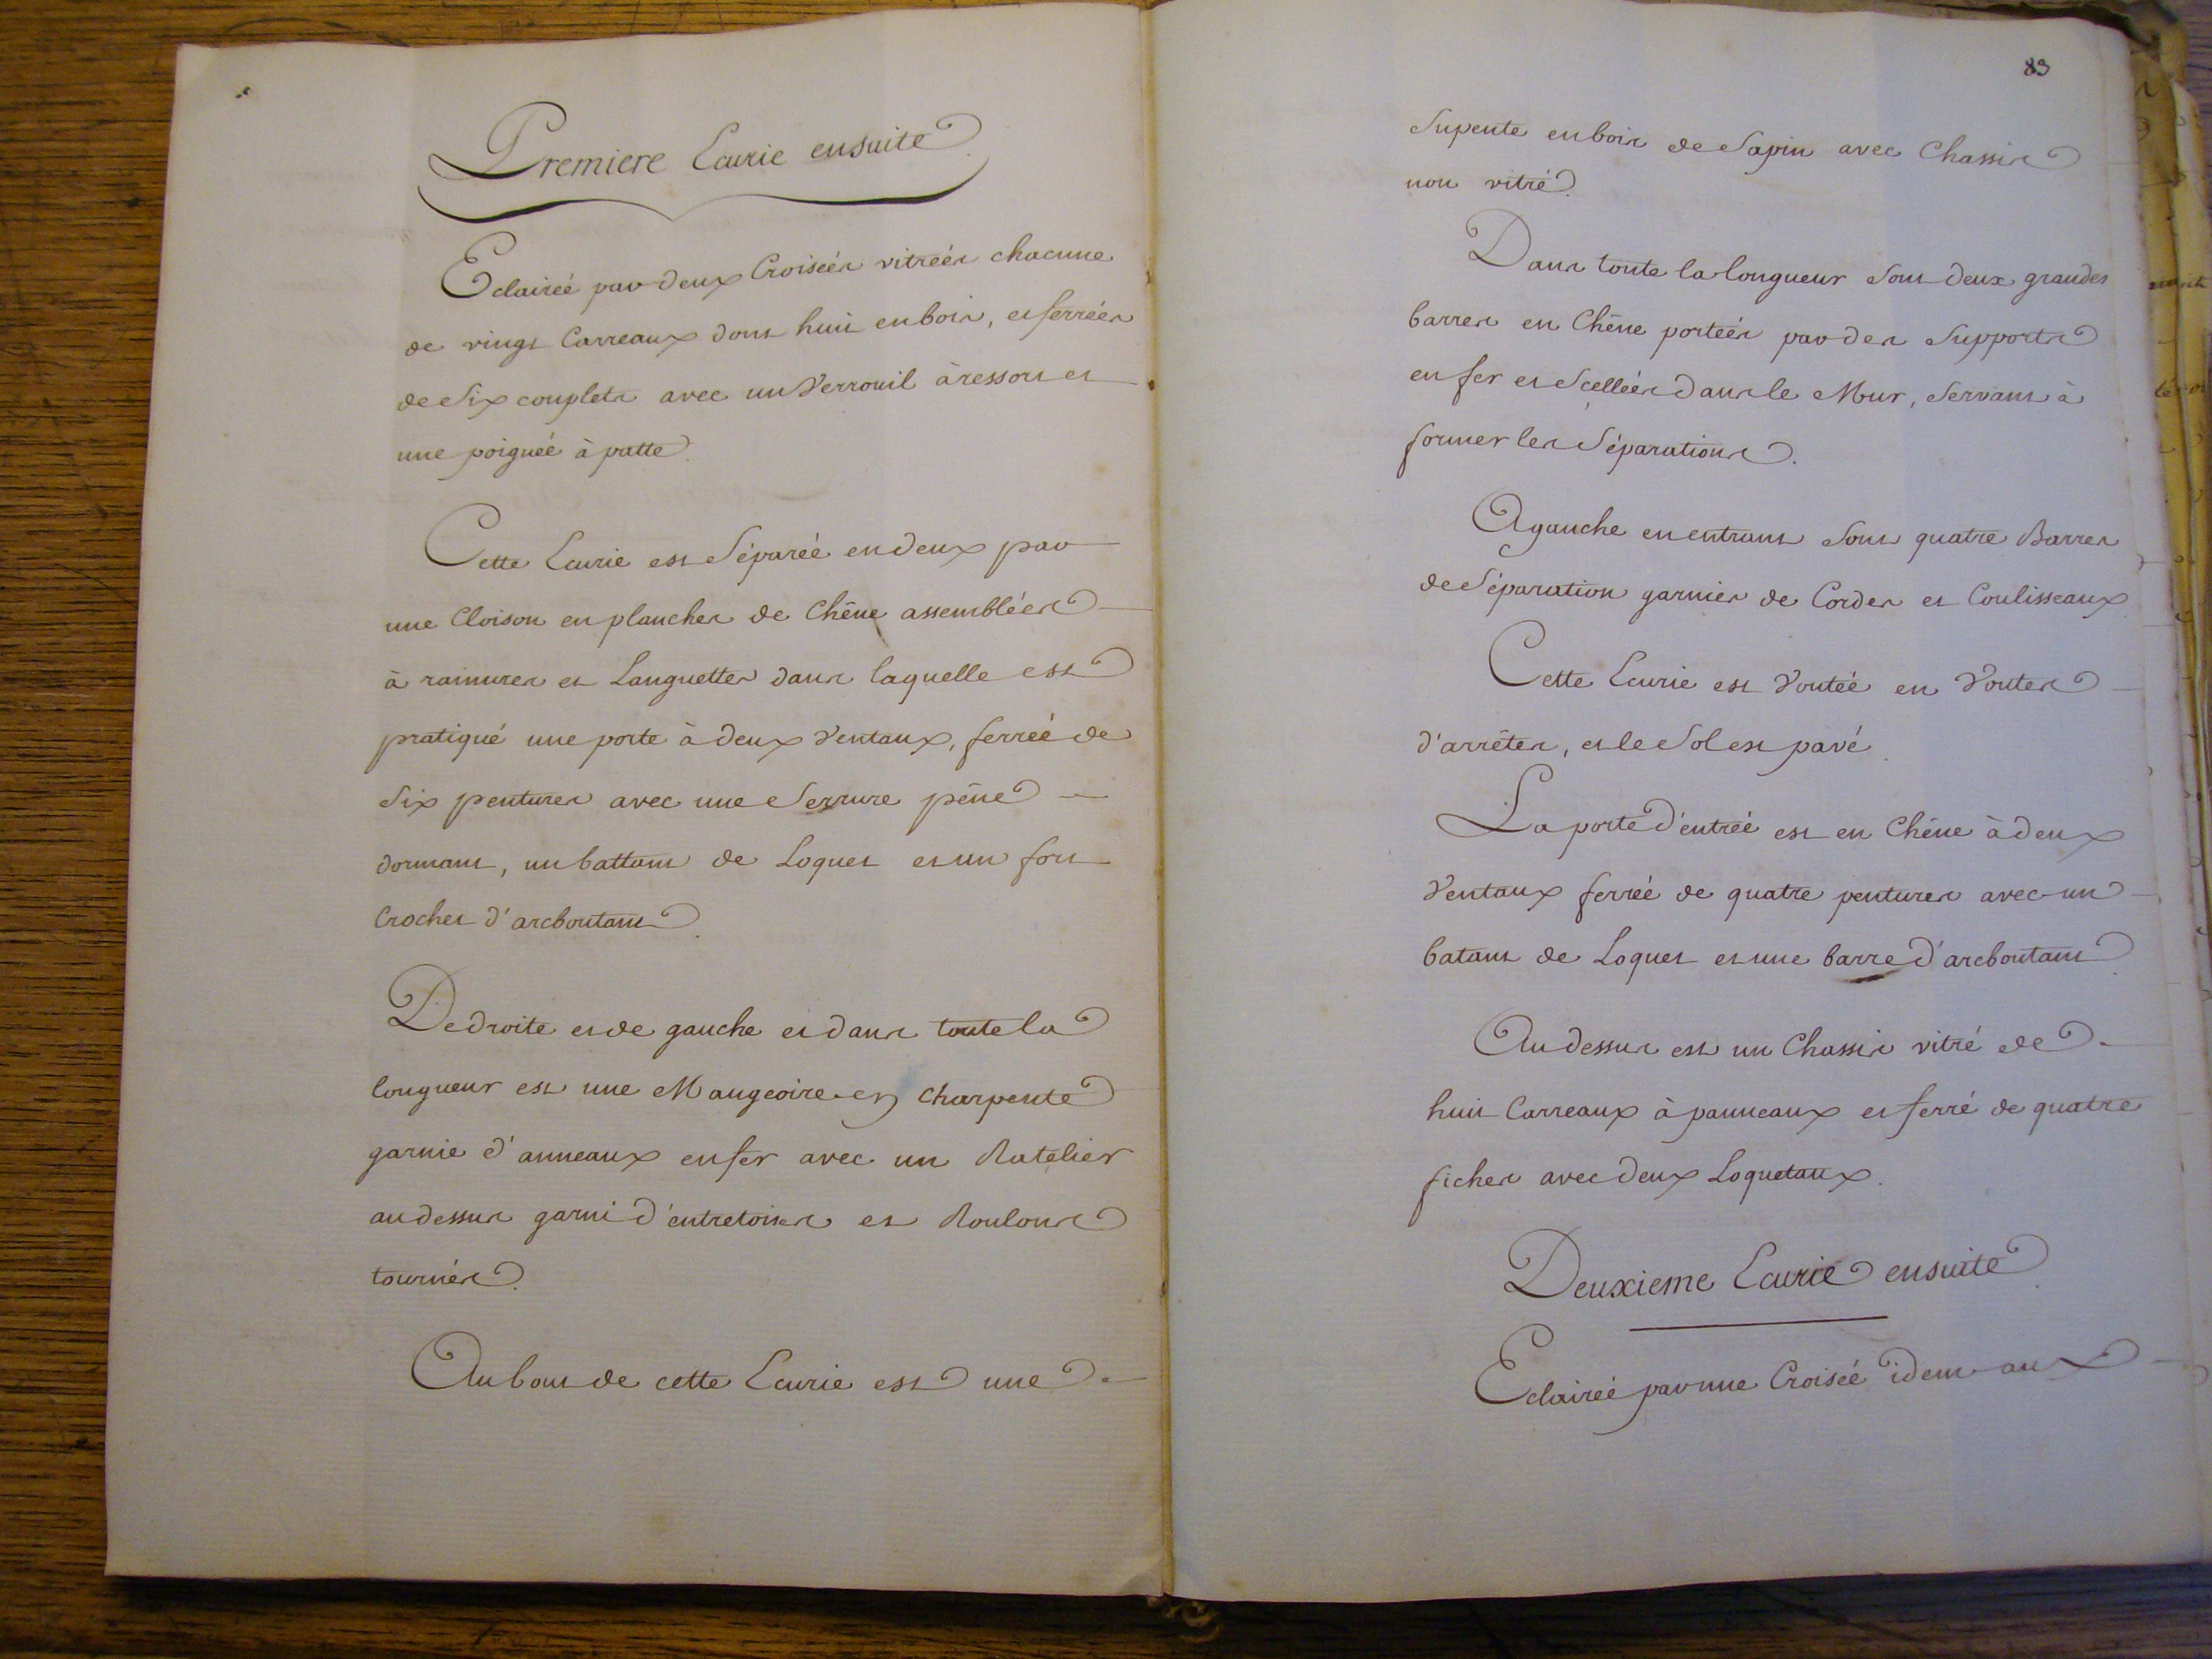 Premiere Ecurie ensuite.
Eclairéé par deux Croiséés vitréés chacune
de vingt Carreaux dont huit en bois, et ferréés
de Six couplets avec un Verrouil à ressort et
une poignéé à patte.
Cette Ecurie est Séparéé en deux par
une Cloison en planches de Chêne assemblées
à rainures et Languettes dans laquelle est
pratiqué une porte à deux Ventaux, ferréé de
Six pentures avec une Serrure pêne
dormant, un battant de Loquet et un fort
Crochet d'arcboutant.
De droite et de gauche et dans toute la
longueur est une Mangeoire en Charpente
garnie d'anneaux en fer avec un Ratelier
au dessus garni d'entretoises et Roulons
tournés.
Au bout de cette Ecurie est une
83
Supente en bois de Sapin avec Chassis
non vitré.
Dans toute la longueur Sont deux grandes
barres en Chêne portéés par des Supports
en fer et Scelléés dans le Mur, Servant à
former les Séparations.
A gauche en entrant Sont quatre Barres
de Séparation garnies de Cordes et Coulisseaux
Cette Ecurie est Voutéé en Voutes
d'arrêtes, et le Sol est pavé.
La porte d'entréé est en Chêne à deux
Ventaux ferréé de quatre pentures avec un
batant de Loquet et une barre d'arcboutant.
Au dessus est un Chassis vitré de
huit Carreaux à panneaux et ferré de quatre
fiches avec deux Loquetaux.
Deuxieme Ecurie ensuite.
Eclairéé par une Croiséé idem aux